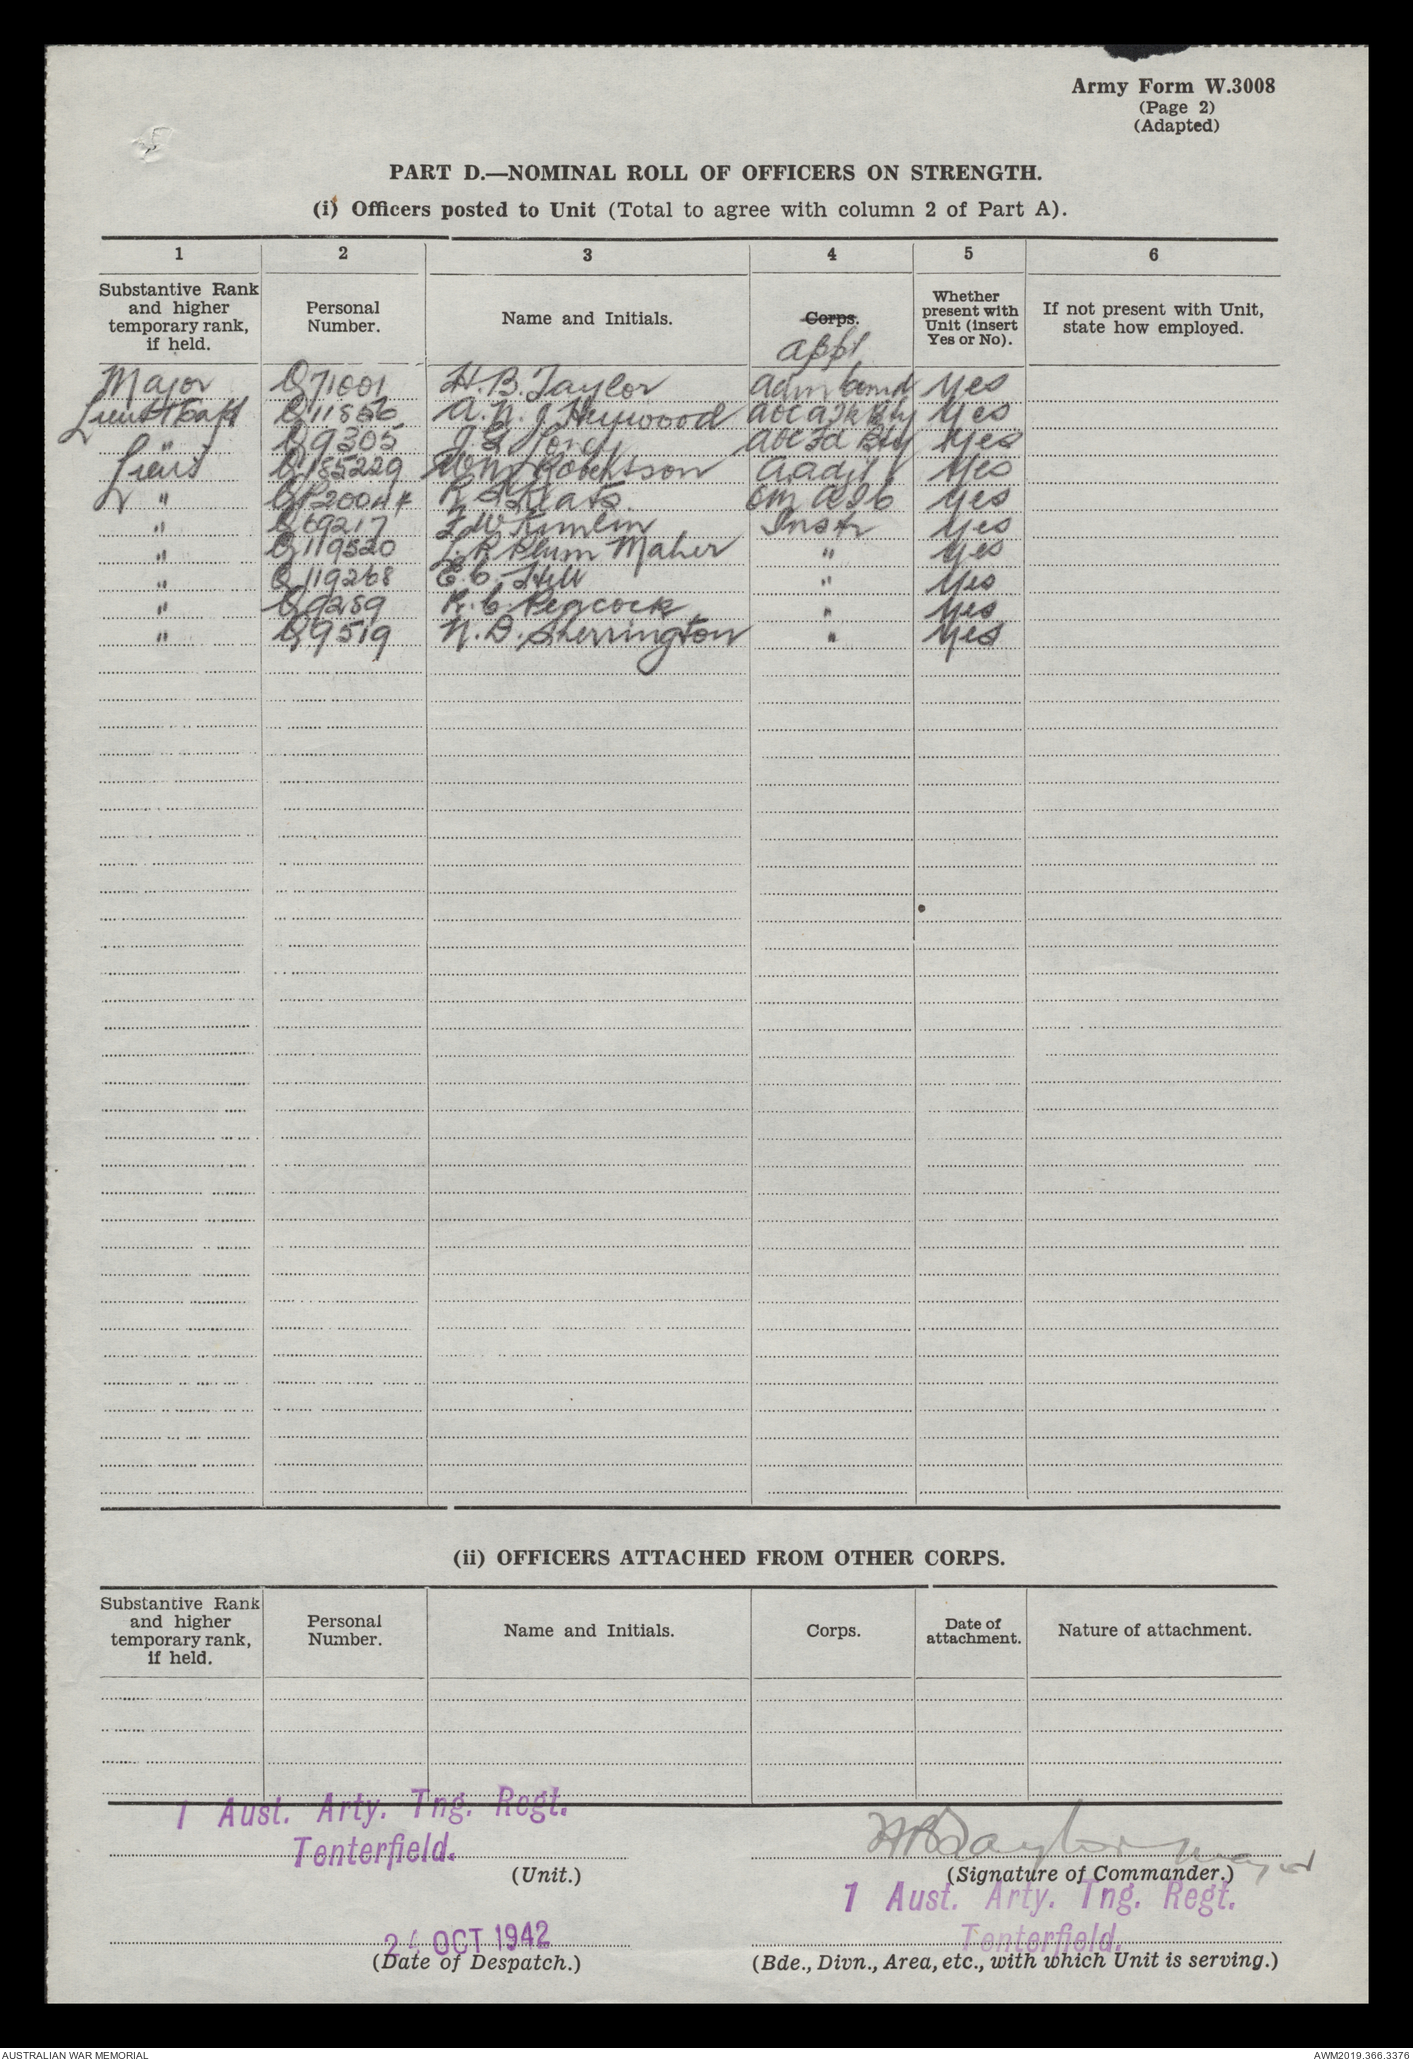 Army Form W.3008
(Page 2)
(Adapted)
PART D.—NOMINAL ROLL OF OFFICERS ON STRENGTH.
(i) Officers posted to Unit (Total to agree with column 2 of Part A).
1 2 3 4 5 6
Substantive Rank and higher temporary rank, if held. Personal Number. Name and Initials. Corps. Appt Whether present with Unit (insert Yes or No). If not present with Unit, state how employed.
Major Q71001 H.B. Taylor Adm Comd Yes
Lieut T/Capt Q11856 A.N.J. Heywood Yes
" Q9305 Yes
Lieut Q185229 Wm Robertson A Adjt Yes
" QP20044 Yes
" Q69217 Instr Yes
" Q119520 L.R. Plum Maher " Yes
" Q119268 E.C. Hill " Yes
" Q9259 R.C. Peacock " Yes
" Q9519 N.D. Sherrington " Yes
(ii) OFFICERS ATTACHED FROM OTHER CORPS.
Substantive Rank and higher temporary rank, if held. Personal Number. Name and Initials. Corps. Date of attachment. Nature of attachment.
1 Aust. Arty. Tng. Regt.
Tenterfield. HB Taylor Major
(Unit.) (Signature of Commander.)
1 Aust. Arty. Tng. Regt.
Tenterfield.
OCT 1942
(Date of Despatch.) (Bde., Divn., Area, etc., with which Unit is serving.)
AUSTRALIAN WAR MEMORIAL AWM2019.366.3376